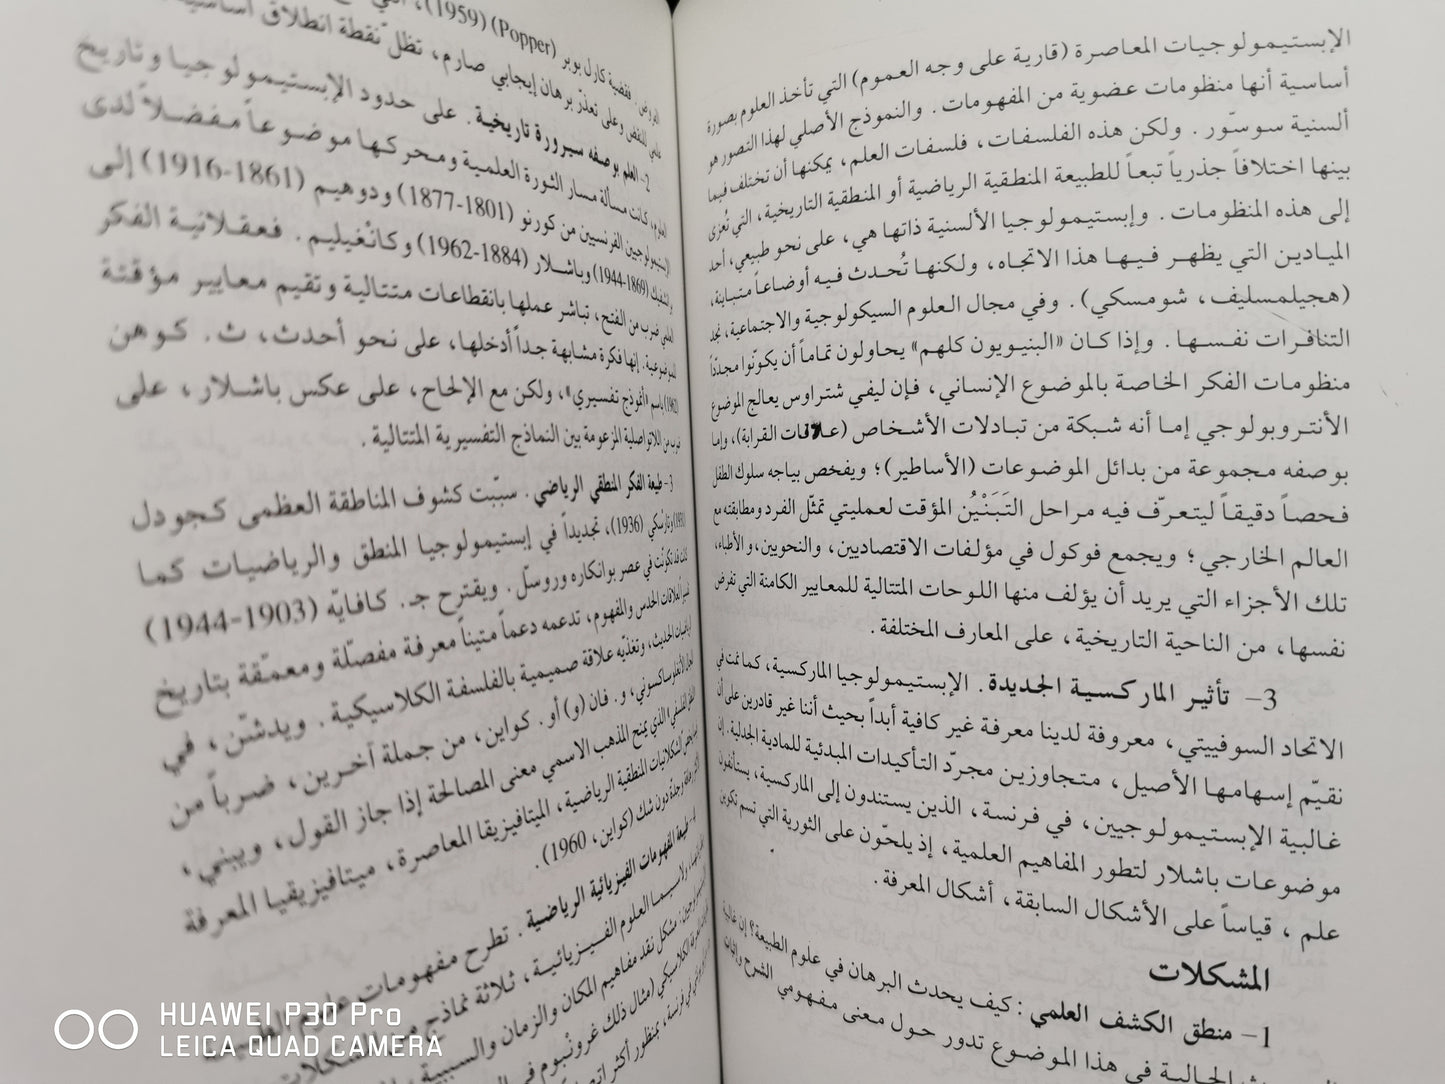 الإبستيمولوجيات المعاصرة (قارية على وجه العموم) التي تأخذ العلوم بصورة
أساسية أنها منظومات عضوية من المفهومات. والنموذج الأصلي لهذا التصور هو
ألسنية سوسّور. ولكن هذه الفلسفات، فلسفات العلم، يمكنها أن تختلف فيما
بينها اختلافاً جذرياً تبعاً للطبيعة المنطقية الرياضية أو المنطقية التاريخية، التي تُعزى
إلى هذه المنظومات. وإبستيمولوجيا الألسنية ذاتها هي، على نحو طبيعي، أحد
الميادين التي يظهر فيها هذا الاتجاه، ولكنها تُحدث فيه أوضاعاً متباينة،
(هجيلمسليف، شومسكي). وفي مجال العلوم السيكولوجية والاجتماعية، نجد
التنافرات نفسها. وإذا كان «البنيويون كلهم» يحاولون تماماً أن يكوّنوا مجدّداً
منظومات الفكر الخاصة بالموضوع الإنساني، فإن ليفي شتراوس يعالج الموضوع
الأنتروبولوجي إما أنه شبكة من تبادلات الأشخاص (علاقات القرابة)، وإما
بوصفه مجموعة من بدائل الموضوعات (الأساطير)؛ ويفحص بياجه سلوك الطفل
فحصاً دقيقاً ليتعرّف فيه مراحل التَبَنْيُن المؤقت لعمليتي تمثّل الفرد ومطابقته مع
العالم الخارجي؛ ويجمع فوكول في مؤلفات الاقتصاديين، والنحويين، والأطباء،
تلك الأجزاء التي يريد أن يؤلف منها اللوحات المتتالية للمعايير الكامنة التي تفرض
نفسها، من الناحية التاريخية، على المعارف المختلفة.
3- تأثير الماركسية الجديدة. الإبستيمولوجيا الماركسية، كما نمت في
الاتحاد السوفييتي، معروفة لدينا معرفة غير كافية أبداً بحيث أننا غير قادرين على أن
نقيّم إسهامها الأصيل، متجاوزين مجرّد التأكيدات المبدئية للمادية الجدلية. إن
غالبية الإبستيمولوجيين، في فرنسة، الذين يستندون إلى الماركسية، يستأنفون
موضوعات باشلار لتطور المفاهيم العلمية، إذ يلحّون على الثورية التي تسم تكوين
علم، قياساً على الأشكال السابقة، أشكال المعرفة.
المشكلات
1- منطق الكشف العلمي: كيف يحدث البرهان في علوم الطبيعة؟ إن غالبية
الحالية في هذا الموضوع تدور حول معنى مفهومي الشرح وإثبات
فقضية كارل بوبر (Popper) (1959)، التي
وعلى تعذّر برهان إيجابي صارم، تظلّ نقطة انطلاق أساسية
2- العلم بوصفه سيرورة تاريخية. على حدود الإبستيمولوجيا وتاريخ
العلوم، كانت مسألة مسار الثورة العلمية ومحركها موضوعاً مفضلاً لدى
الإبستيمولوجيين الفرنسيين من كورنو (1801-1877) ودوهيم (1861-1916) إلى
(1869-1944) وباشلار (1884-1962) وكانْغيليم. فعقلانية الفكر
العلمي ضرب من الفتح، تباشر عملها بانقطاعات متتالية وتقيم معايير مؤقتة
للموضوعية. إنها فكرة مشابهة جداً أدخلها، على نحو أحدث، ث. كوهن
(1962) باسم «أنموذج تفسيري»، ولكن مع الإلحاح، على عكس باشلار، على
ضرب من اللاتواصلية المزعومة بين النماذج التفسيرية المتتالية.
3- طبيعة الفكر المنطقي الرياضي. سبّبت كشوف المناطقة العظمى كجودل
(1931) وتارسكي (1936)، تجديداً في إبستيمولوجيا المنطق والرياضيات كما
كانت قد تكوّنت في عصر بوانكاره وروسلّ. ويقترح جـ. كافاييّه (1903-1944)
لعلاقات الحدس والمفهوم، تدعمه دعماً متيناً معرفة مفصّلة ومعمّقة بتاريخ
الرياضيات الحديث، وتغذّيه علاقة صميمية بالفلسفة الكلاسيكية. ويدشّن، في
المجال الأنغلوساكسوني، و. فان (و) أو. كواين، من جملة آخرين، ضرباً من
الذي يمنح المذهب الاسمي معنى المصالحة إذا جاز القول، ويبني،
الشكلانيات المنطقية الرياضية، الميتافيزيقا المعاصرة، ميتافيزيقيا المعرفة
وحيدة دون شك (كواين، 1960).
4- طبيعة المفهومات الفيزيائية الرياضية. تطرح مفهومات علوم
ولاسيما العلوم الفيزيائية، ثلاثة نماذج من المشكلات
مشكل نقد مفاهيم المكان والزمان والسببية
الكلاسيكي (مثال ذلك غرونْبوم في
في فرنسة، بمنظور أكثر
HUAWEI P30 Pro
LEICA QUAD CAMERA